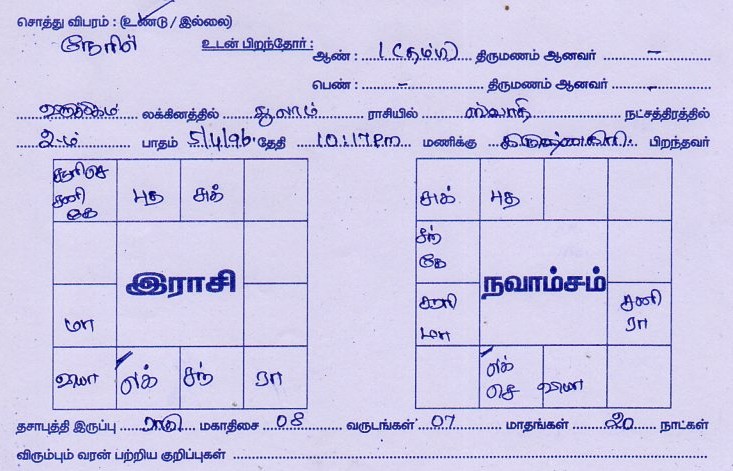 சொத்து விபரம் : (உண்டு / இல்லை)
நேரில் உடன் பிறந்தோர் : ஆண் : 1 (தம்பி) திருமணம் ஆனவர் –
பெண் : – திருமணம் ஆனவர் -
லக்கினத்தில் துலாம் ராசியில் ஸ்வாதி நட்சத்திரத்தில்
2-ம் பாதம் 5/4/96 தேதி 10:17 Pm மணிக்கு கிருஷ்ணகிரி பிறந்தவர்
சூரி செ சனி கே புத சுக்
இராசி
மா
லக் சந் ரா
சுக் புத
சந் கே
நவாம்சம்
சூரி மா சனி ரா
லக் செ
தசாபுத்தி இருப்பு ராகு மகாதிசை 08 வருடங்கள் 07 மாதங்கள் 20 நாட்கள்
விரும்பும் வரன் பற்றிய குறிப்புகள்